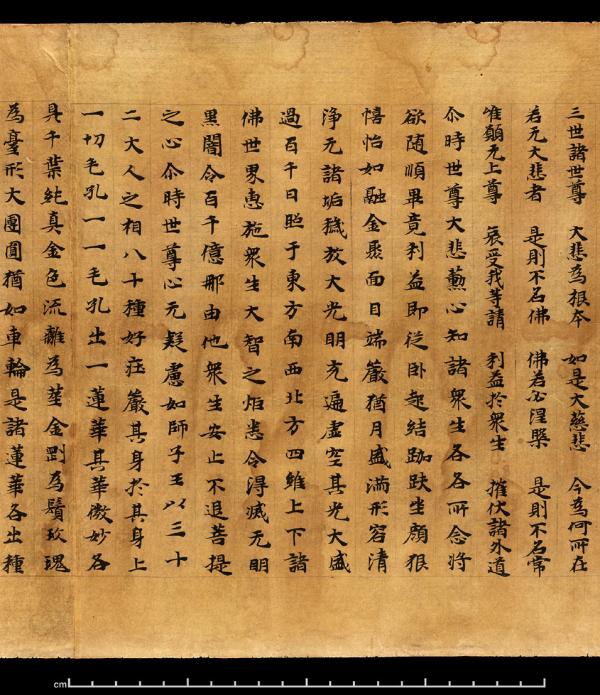 三世諸世尊　大悲為根本　如是大慈悲　今為何所在
若无大悲者　是則不名佛　佛若必涅槃　是則不名常
唯願无上尊　哀受我等請　利益於衆生　摧伏諸外道
尒時世尊大悲薰心知諸衆生各各所念將
欲随順畢竟利益即從卧起結跏趺坐顔貌
憘怡如融金聚面目端嚴猶月盛滿形容清
淨无諸垢穢放大光明充遍虛空其光大盛
過百千日照于東方南西北方四維上下諸
佛世界惠施衆生大智之炬悉令得滅无明
黑闇令百千億那由他衆生安止不退菩提
之心尒時世尊心无疑慮如師子王以三十
二大人之相八十種好莊嚴其身於其身上
一切毛孔一一毛孔出一蓮華其華微妙各
具千葉純真金色流離為莖金剛為鬚玫瑰
為臺形大團圓猶如車輪是諸蓮華各出種
cm